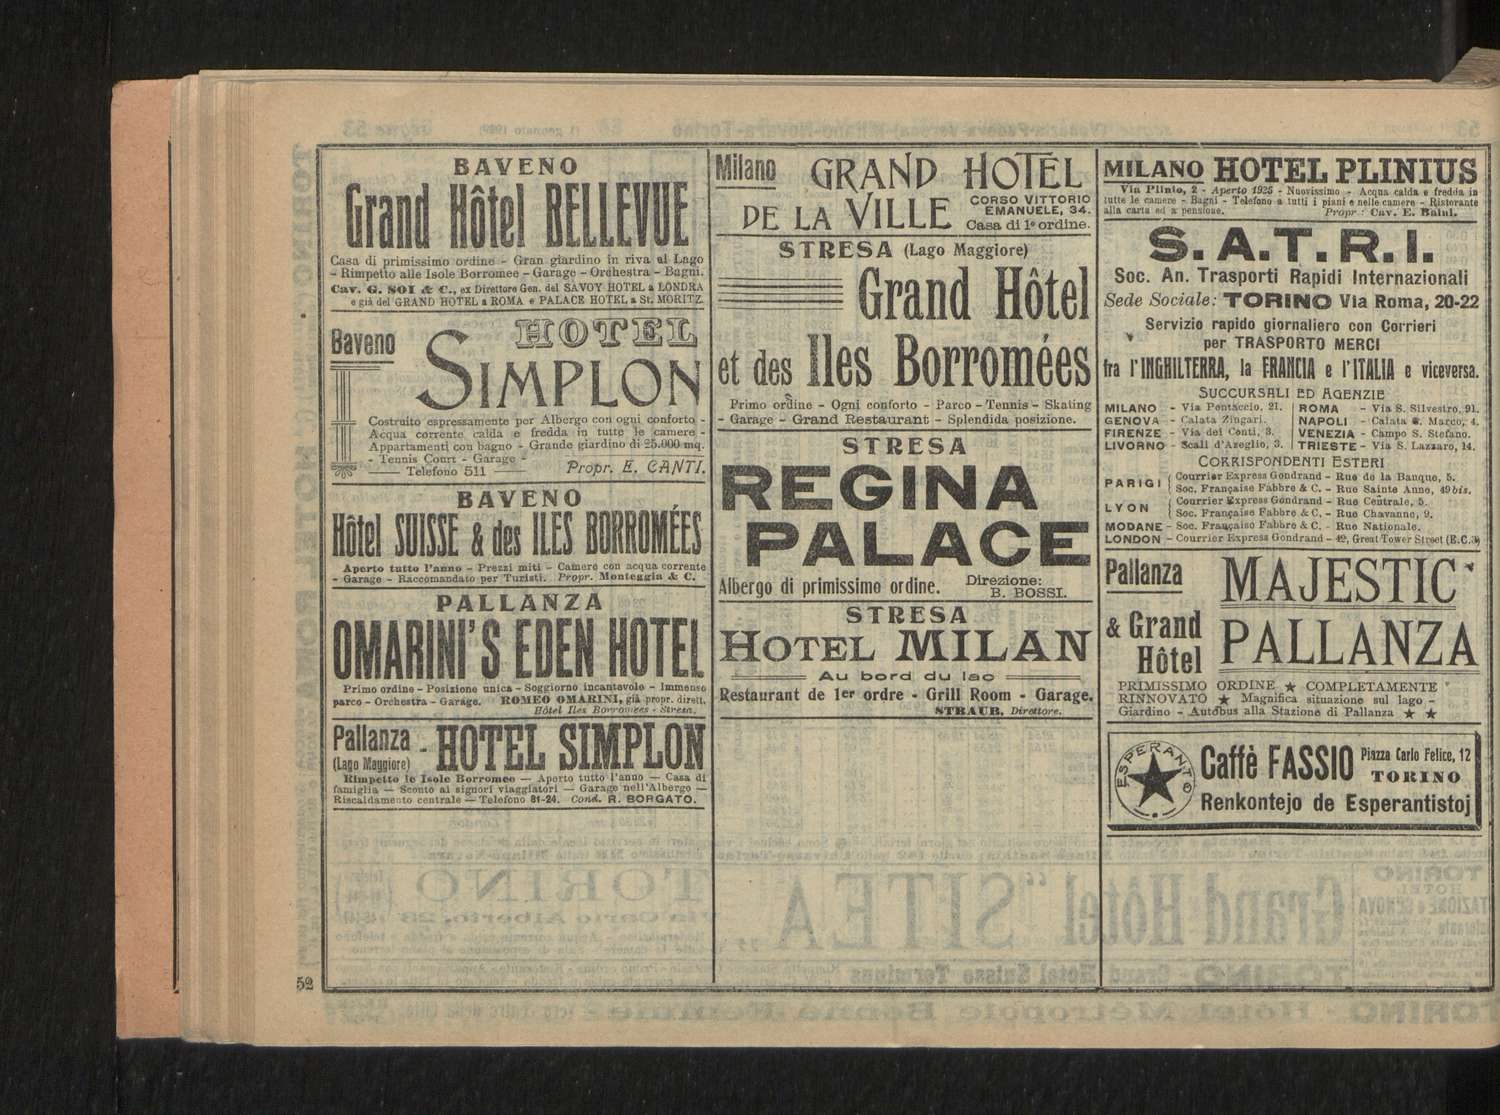 BAVENO
Grand Hôtel BELLEVUE
Casa di primissimo ordine - Gran giardino in riva al Lago
- Rimpetto alle Isole Borromee - Garage - Orchestra - Bagni.
Cav. G. SOI & C., ex Direttore Gen. del SAVOY HOTEL a LONDRA
e già del GRAND HOTEL a ROMA e PALACE HOTEL a St. MORITZ.
Baveno
HOTEL
SIMPLON
Costruito espressamente per Albergo con ogni conforto -
Acqua corrente calda e fredda in tutte le camere -
Appartamenti con bagno - Grande giardino di 25.000 mq.
- Tennis Court - Garage -
Telefono 511
Propr. E. CANTI.
BAVENO
Hôtel SUISSE & des ILES BORROMÉES
Aperto tutto l'anno - Prezzi miti - Camere con acqua corrente
- Garage - Raccomandato per Turisti. Propr. Monteggia & C.
PALLANZA
OMARINI'S EDEN HOTEL
Primo ordine - Posizione unica - Soggiorno incantavole - Immenso
parco - Orchestra - Garage. ROMEO OMARINI, già propr. dirett.
Hôtel Iles Borromées - Stresa.
Pallanza - HOTEL SIMPLON
(Lago Maggiore)
Rimpetto le Isole Borromee — Aperto tutto l'anno — Casa di
famiglia — Sconto ai signori viaggiatori — Garage nell'Albergo —
Riscaldamento centrale — Telefono 81-24. Cond. R. BORGATO.
52
Milano GRAND HOTEL
DE LA VILLE CORSO VITTORIO
EMANUELE, 34.
Casa di 1º ordine.
STRESA (Lago Maggiore)
Grand Hôtel
et des Iles Borromées
Primo ordine - Ogni conforto - Parco - Tennis - Skating
- Garage - Grand Restaurant - Splendida posizione.
STRESA
REGINA
PALACE
Albergo di primissimo ordine. Direzione:
B. BOSSI.
STRESA
HOTEL MILAN
Au bord du lac
Restaurant de 1er ordre - Grill Room - Garage.
STRAUB, Direttore.
MILANO HOTEL PLINIUS
Via Plinio, 2 - Aperto 1925 - Nuovissimo - Acqua calda e fredda in
tutte le camere - Bagni - Telefono a tutti i piani e nelle camere - Ristorante
alla carta ed a pensione. Propr.: Cav. E. Baini.
S.A.T.R.I.
Soc. An. Trasporti Rapidi Internazionali
Sede Sociale: TORINO Via Roma, 20-22
Servizio rapido giornaliero con Corrieri
per TRASPORTO MERCI
fra l'INGHILTERRA, la FRANCIA e l'ITALIA e viceversa.
SUCCURSALI ED AGENZIE
MILANO - Via Pontaccio, 21.
GENOVA - Calata Zingari.
FIRENZE - Via dei Conti, 3.
LIVORNO - Scali d'Azeglio, 3.
ROMA - Via S. Silvestro, 91.
NAPOLI - Calata S. Marco, 4.
VENEZIA - Campo S. Stefano.
TRIESTE - Via S. Lazzaro, 14.
CORRISPONDENTI ESTERI
PARIGI { Courrier Express Gondrand - Rue de la Banque, 5.
Soc. Française Fabbre & C. - Rue Sainte Anne, 49 bis.
LYON { Courrier Express Gondrand - Rue Centrale, 5.
Soc. Française Fabbre & C. - Rue Chavanne, 9.
MODANE - Soc. Française Fabbre & C. - Rue Nationale.
LONDON - Courrier Express Gondrand - 42, Great Tower Street (E.C.3)
Pallanza MAJESTIC
& Grand
Hôtel PALLANZA
PRIMISSIMO ORDINE ★ COMPLETAMENTE
RINNOVATO ★ Magnifica situazione sul lago -
Giardino - Autobus alla Stazione di Pallanza ★ ★
ESPERANTO
Caffè FASSIO Piazza Carlo Felice, 12
TORINO
Renkontejo de Esperantistoj